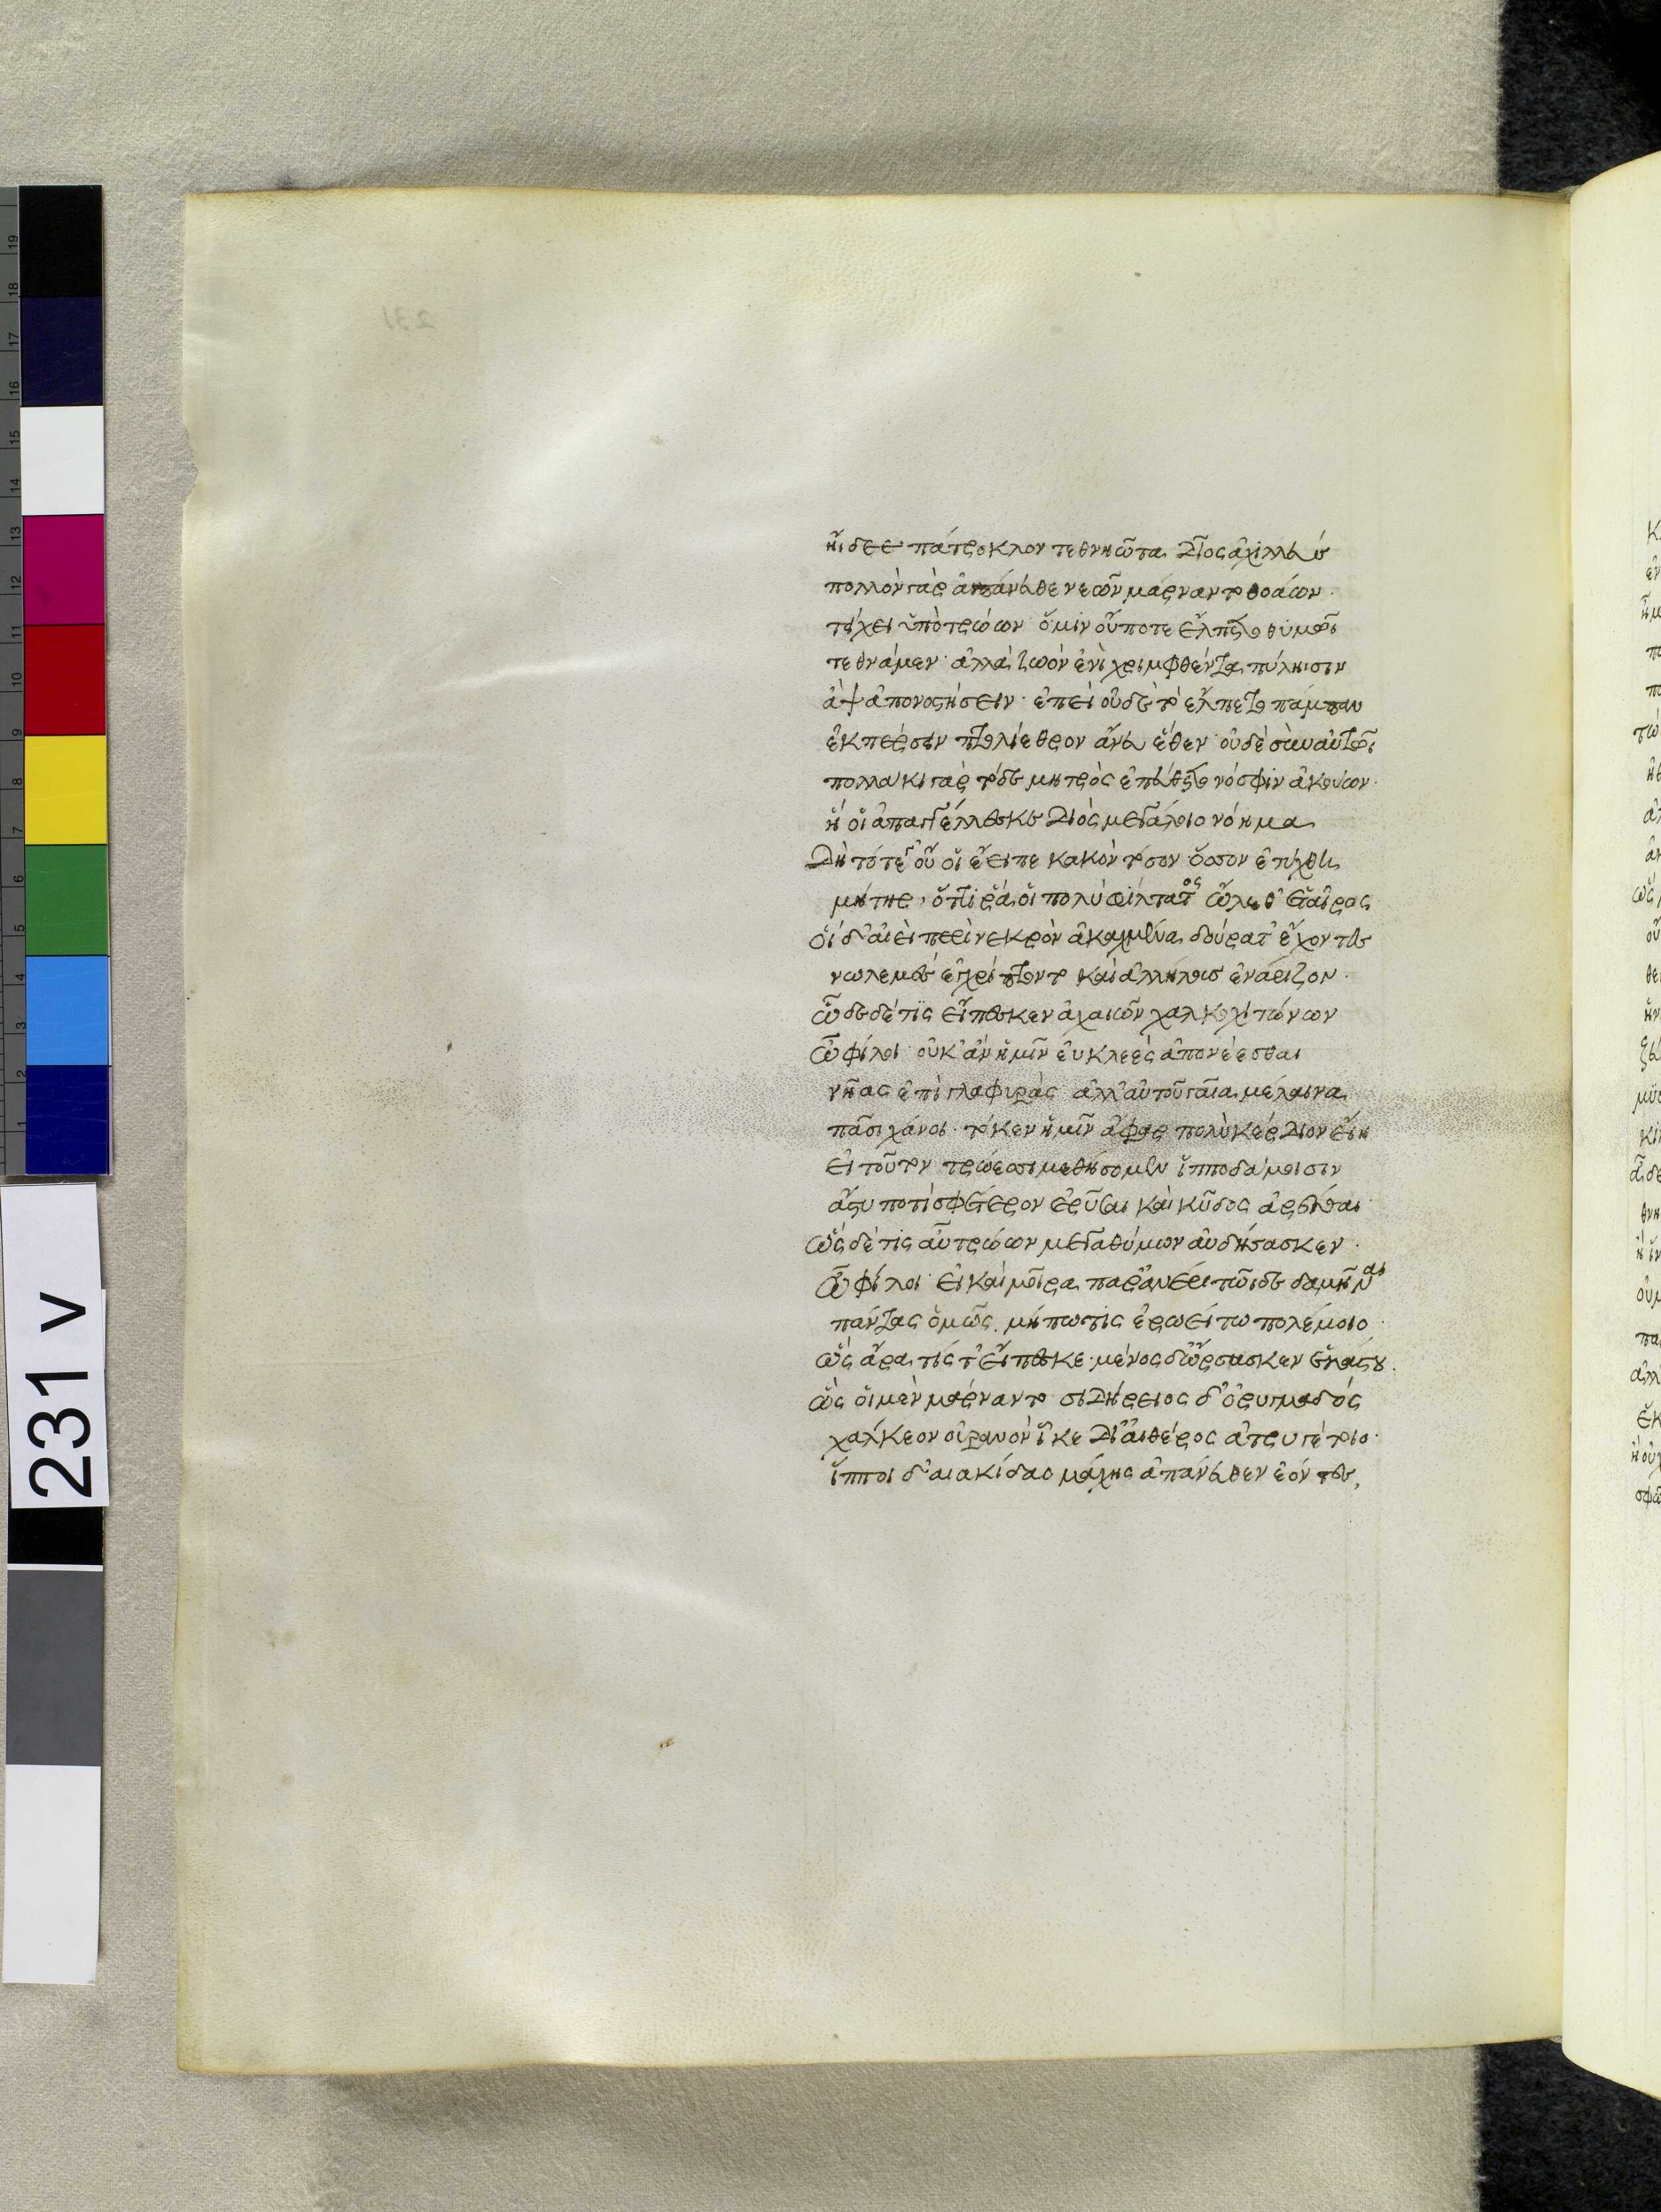 ἤιδεε πάτροκλον τεθνηῶτα δῖος ἀχιλλεύς
πολλὸν γὰρ ἀπάνευθε νεῶν μάρναντο θοάων·
τείχει ὕπο τρώων· ὅ μιν οὔποτε ἔλπετο θυμῶι
τεθνάμεν· ἀλλὰ ζωὸν ἐνιχριμφθέντα πύληισιν
ἂψ ἀπονοστήσειν· ἐπεὶ οὐδὲ τὸ ἔλπετο πάμπαν
ἐκπέρσειν πτολίεθρον ἄνευ ἕθεν· οὐδὲ σὺν αὐτῶι
πολλάκι γὰρ τόδε μητρὸς ἐπεύθετο νόσφιν ἀκούων·
ἥ οἱ ἀπαγγέλλεσκε διὸς μεγάλοιο νόημα
δὴ τότε γ' οὔ οἱ ἔειπε κακὸν τόσον ὅσσον ἐτύχθη
μήτηρ, ὅττι ῥά οἱ πολὺ φίλτατος ὤλεθ' ἑταῖρος
οἱ δ' αἰεὶ περὶ νεκρὸν ἀκαχμένα δούρατ' ἔχοντες
νωλεμὲς ἐγχρίπτοντο καὶ ἀλλήλους ἐνάριζον·
ὧδε δέ τις εἴπεσκεν ἀχαιῶν χαλκοχιτώνων
ὦ φίλοι· οὐκ ἂν ἡμῖν ἐυκλεὲς ἀπονέεσθαι
νῆας ἐπὶ γλαφυράς· ἀλλ' αὐτοῦ γαῖα μέλαινα
πᾶσι χάνοι· τό κεν ἡμῖν ἄφαρ πολὺ κέρδιον εἴη
εἰ τοῦτον τρώεσσι μεθήσομεν ἱπποδάμοισιν
ἄστυ ποτὶ σφέτερον ἐρύσαι καὶ κῦδος ἀρέσθαι·
ὣς δέ τις αὖ τρώων μεγαθύμων αὐδήσασκεν·
ὦ φίλοι· εἰ καὶ μοῖρα παρ' ἀνέρι τῶιδε δαμῆναι
πάντας ὁμῶς. μήπω τις ἐρωείτω πολέμοιο·
ὣς ἄρα τίς τ' εἴπεσκε· μένος δ' ὦρσασκεν ἑκάστου·
ὣς οἱ μὲν μάρναντο σιδήρειος δ' ὀρυμαδὸς
χάλκεον οὐρανὸν ἷκε δι' αἰθέρος ἀτρυγέτοιο·
ἵπποι δ' αἰακίδαο μάχης ἀπάνευθεν ἐόντες,
231 v